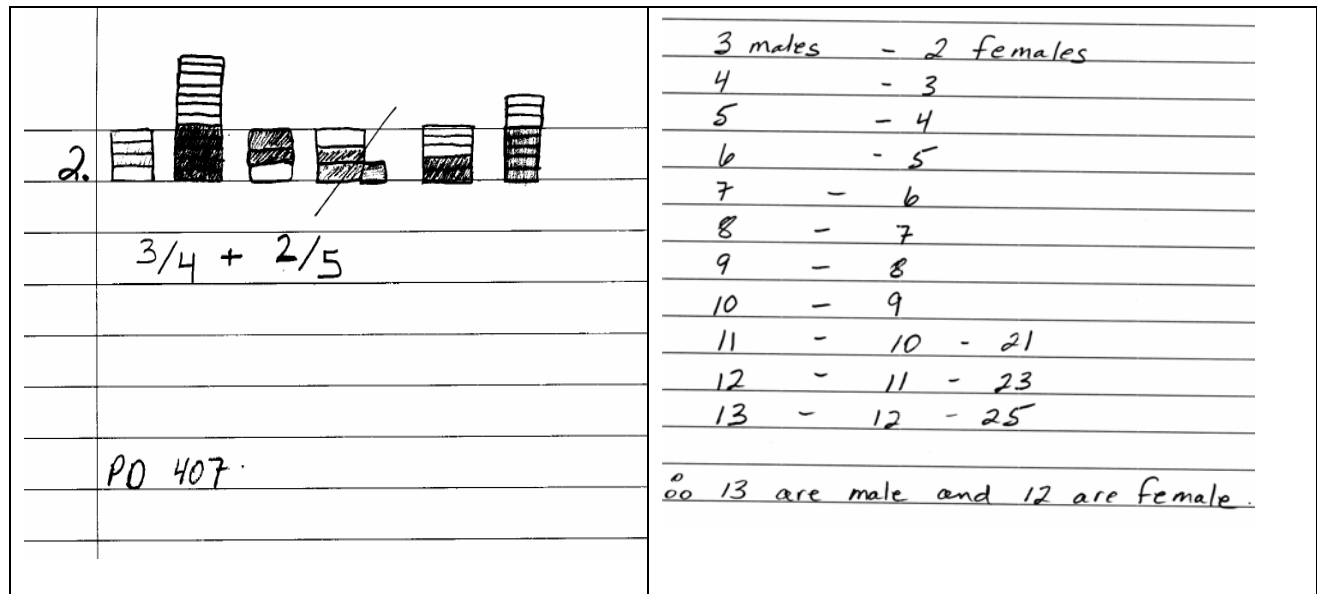 2.
3/4 + 2/5
PD 407.
3 males - 2 females
4 - 3
5 - 4
6 - 5
7 - 6
8 - 7
9 - 8
10 - 9
11 - 10 - 21
12 - 11 - 23
13 - 12 - 25
∴ 13 are male and 12 are female.